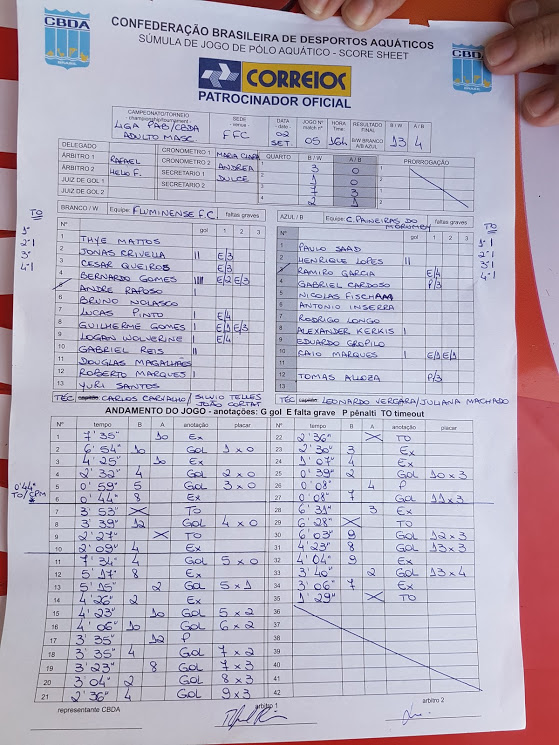 CBDA
BRASIL
CONFEDERAÇÃO BRASILEIRA DE DESPORTOS AQUÁTICOS
SÚMULA DE JOGO DE PÓLO AQUÁTICO - SCORE SHEET
CBDA
BRASIL
CORREIOS
PATROCINADOR OFICIAL
CAMPEONATO/TORNEIO championship/tournament LIGA PAB/CBDA ADULTO MASC.
SEDE venue FFC
DATA - date - 02 SET.
JOGO Nº match nº 05
HORA Time 16h
RESULTADO FINAL B/W BRANCO A/B AZUL
B / W 13
A / B 4
DELEGADO
CRONOMETRO 1 MARIA CLARA
ÁRBITRO 1 RAFAEL CRONOMETRO 2 ANDREA
ÁRBITRO 2 HELIO F. SECRETARIO 1 DULCE
JUIZ DE GOL 1 SECRETARIO 2
JUIZ DE GOL 2
QUARTO B / W A / B PRORROGAÇÃO
1 3 0
2 1 0
3 7 3
4 2 1
BRANCO / W Equipe: FLUMINENSE F.C. faltas graves
Nº gol 1 2 3
1 THYE MATTOS
2 JONAS CRIVELLA II E/3
3 CESAR QUEIROS E/3
4 BERNARDO GOMES IIII E/2 E/3
5 ANDRE RAPOSO I
6 BRUNO NOLASCO
7 LUCAS PINTO I E/4
8 GUILHERME GOMES I E/1 E/3
9 LOGAN WOLVERINE I E/4
10 GABRIEL REIS II
11 DOUGLAS MAGALHÃES
12 ROBERTO MARQUES I
13 YURI SANTOS
TÉC. capitão: CARLOS CARVALHO / SILVIO TELLES
JOÃO CORTAT
TO
1º
2º I
3º
4º I
AZUL / B Equipe: C. PAINEIRAS DO MORUMBY faltas graves
Nº gol 1 2 3
1 PAULO SAAD
2 HENRIQUE LOPES II
3 RAMIRO GARCIA E/4
4 GABRIEL CARDOSO P/3
5 NICOLAS
6 ANTONIO INSERRA
7 RODRIGO LONGO
8 ALEXANDER KERKIS I
9 EDUARDO
10 CAIO MARQUES I E/1 E/1
11
12 TOMAS P/3
13
TÉC. capitão: LEONARDO VERGARA/JULIANA MACHADO
TO
1º I
2º I
3º I
4º I
ANDAMENTO DO JOGO - anotações: G gol E falta grave P pênalti TO timeout
Nº tempo B A anotação placar
1 7'35" 10 Ex
2 6'54" 10 GOL 1x0
3 4'25" 10 Ex
4 2'32" 4 GOL 2x0
5 0'59" 5 GOL 3x0
6 0'44" 8 Ex
0'44" TO/CPM
7 3'53" X TO
8 3'39" 12 GOL 4x0
9 2'27" X TO
10 2'09" 4 Ex
11 7'34" 4 GOL 5x0
12 5'17" 8 Ex
13 5'15" 2 GOL 5x1
14 4'26" 2 Ex
15 4'23" 10 GOL 5x2
16 4'06" 10 GOL 6x2
17 3'35" 12 P
18 3'35" 4 GOL 7x2
19 3'23" 8 GOL 7x3
20 3'04" 2 GOL 8x3
21 2'36" 4 GOL 9x3
Nº tempo B A anotação placar
22 2'36" X TO
23 2'30" 3 Ex
24 1'07" 4 Ex
25 0'39" 2 GOL 10x3
26 0'08" 4 P
27 0'08" 7 GOL 11x3
28 6'31" 3 Ex
29 6'28" X TO
30 6'03" 9 GOL 12x3
31 4'23" 8 GOL 13x3
32 4'04" 9 Ex
33 3'40" 2 GOL 13x4
34 3'06" 7 Ex
35 1'29" X TO
36
37
38
39
40
41
42
representante CBDA
arbitro 1
arbitro 2